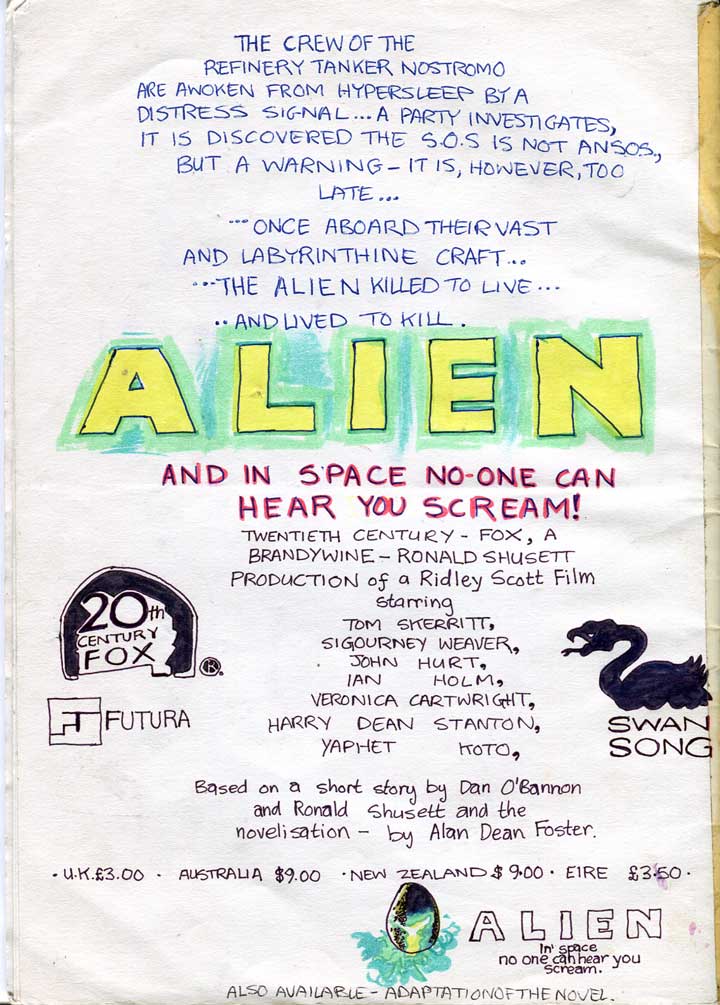 THE CREW OF THE
REFINERY TANKER NOSTROMO
ARE AWOKEN FROM HYPERSLEEP BY A
DISTRESS SIGNAL... A PARTY INVESTIGATES,
IT IS DISCOVERED THE S.O.S IS NOT AN S.O.S.,
BUT A WARNING – IT IS, HOWEVER, TOO
LATE...
...ONCE ABOARD THEIR VAST
AND LABYRINTHINE CRAFT...
...THE ALIEN KILLED TO LIVE...
..AND LIVED TO KILL.
ALIEN
AND IN SPACE NO-ONE CAN
HEAR YOU SCREAM!
TWENTIETH CENTURY - FOX, A
BRANDYWINE – RONALD SHUSETT
PRODUCTION of a Ridley Scott Film
starring
TOM SKERRITT,
SIGOURNEY WEAVER,
JOHN HURT,
IAN HOLM,
VERONICA CARTWRIGHT,
HARRY DEAN STANTON,
YAPHET KOTO,
20th
CENTURY
FOX
®.
FUTURA
SWAN
SONG
Based on a short story by Dan O'Bannon
and Ronald Shusett and the
novelisation – by Alan Dean Foster.
· U.K.£3.00 · AUSTRALIA $9.00 · NEW ZEALAND $ 9.00 · EIRE £3.50 ·
ALIEN
In space
no one can hear you
scream.
ALSO AVAILABLE – ADAPTATION OF THE NOVEL.